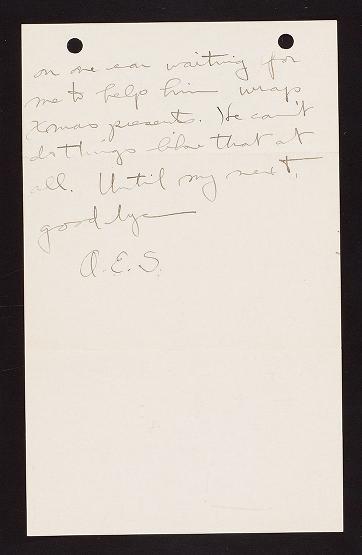 on one ear waiting for
me to help him wrap
Xmas presents. He can't
do things like that at
all. Until my next,
good bye
A.E.S.